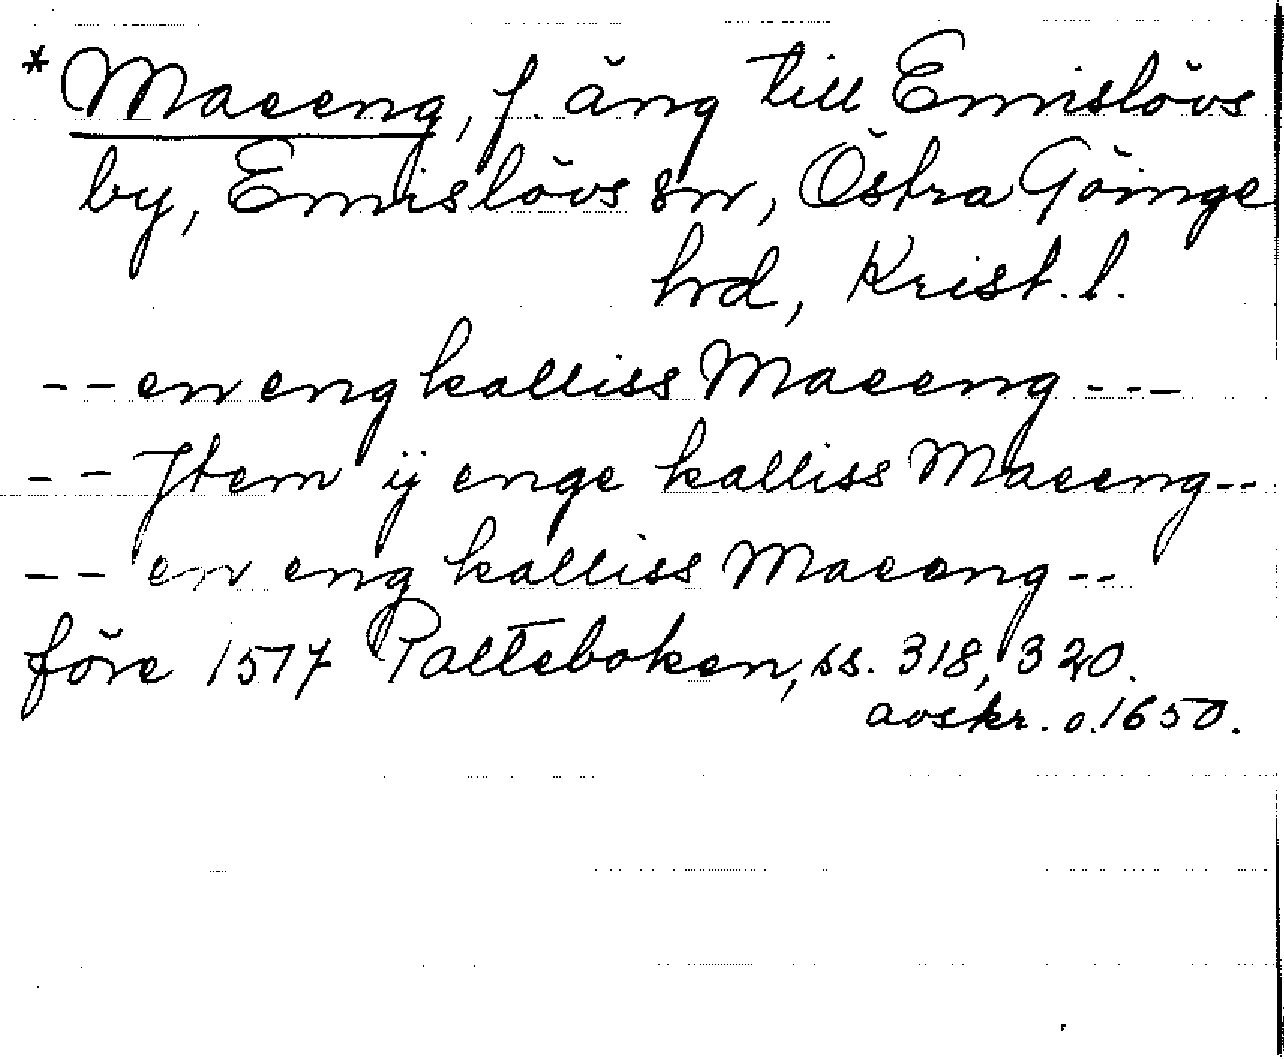 *Maeeng, f. äng till Emislövs
by, Emislövs sn, Östra Göinge
hrd, Krist. l.
-- en eng kalliss Maeeng ---
-- Jtem ij enge kalliss Maeeng --
-- en eng kalliss Maeeng --
före 1517 Palteboken, ss. 318, 320.
avskr. o. 1650.